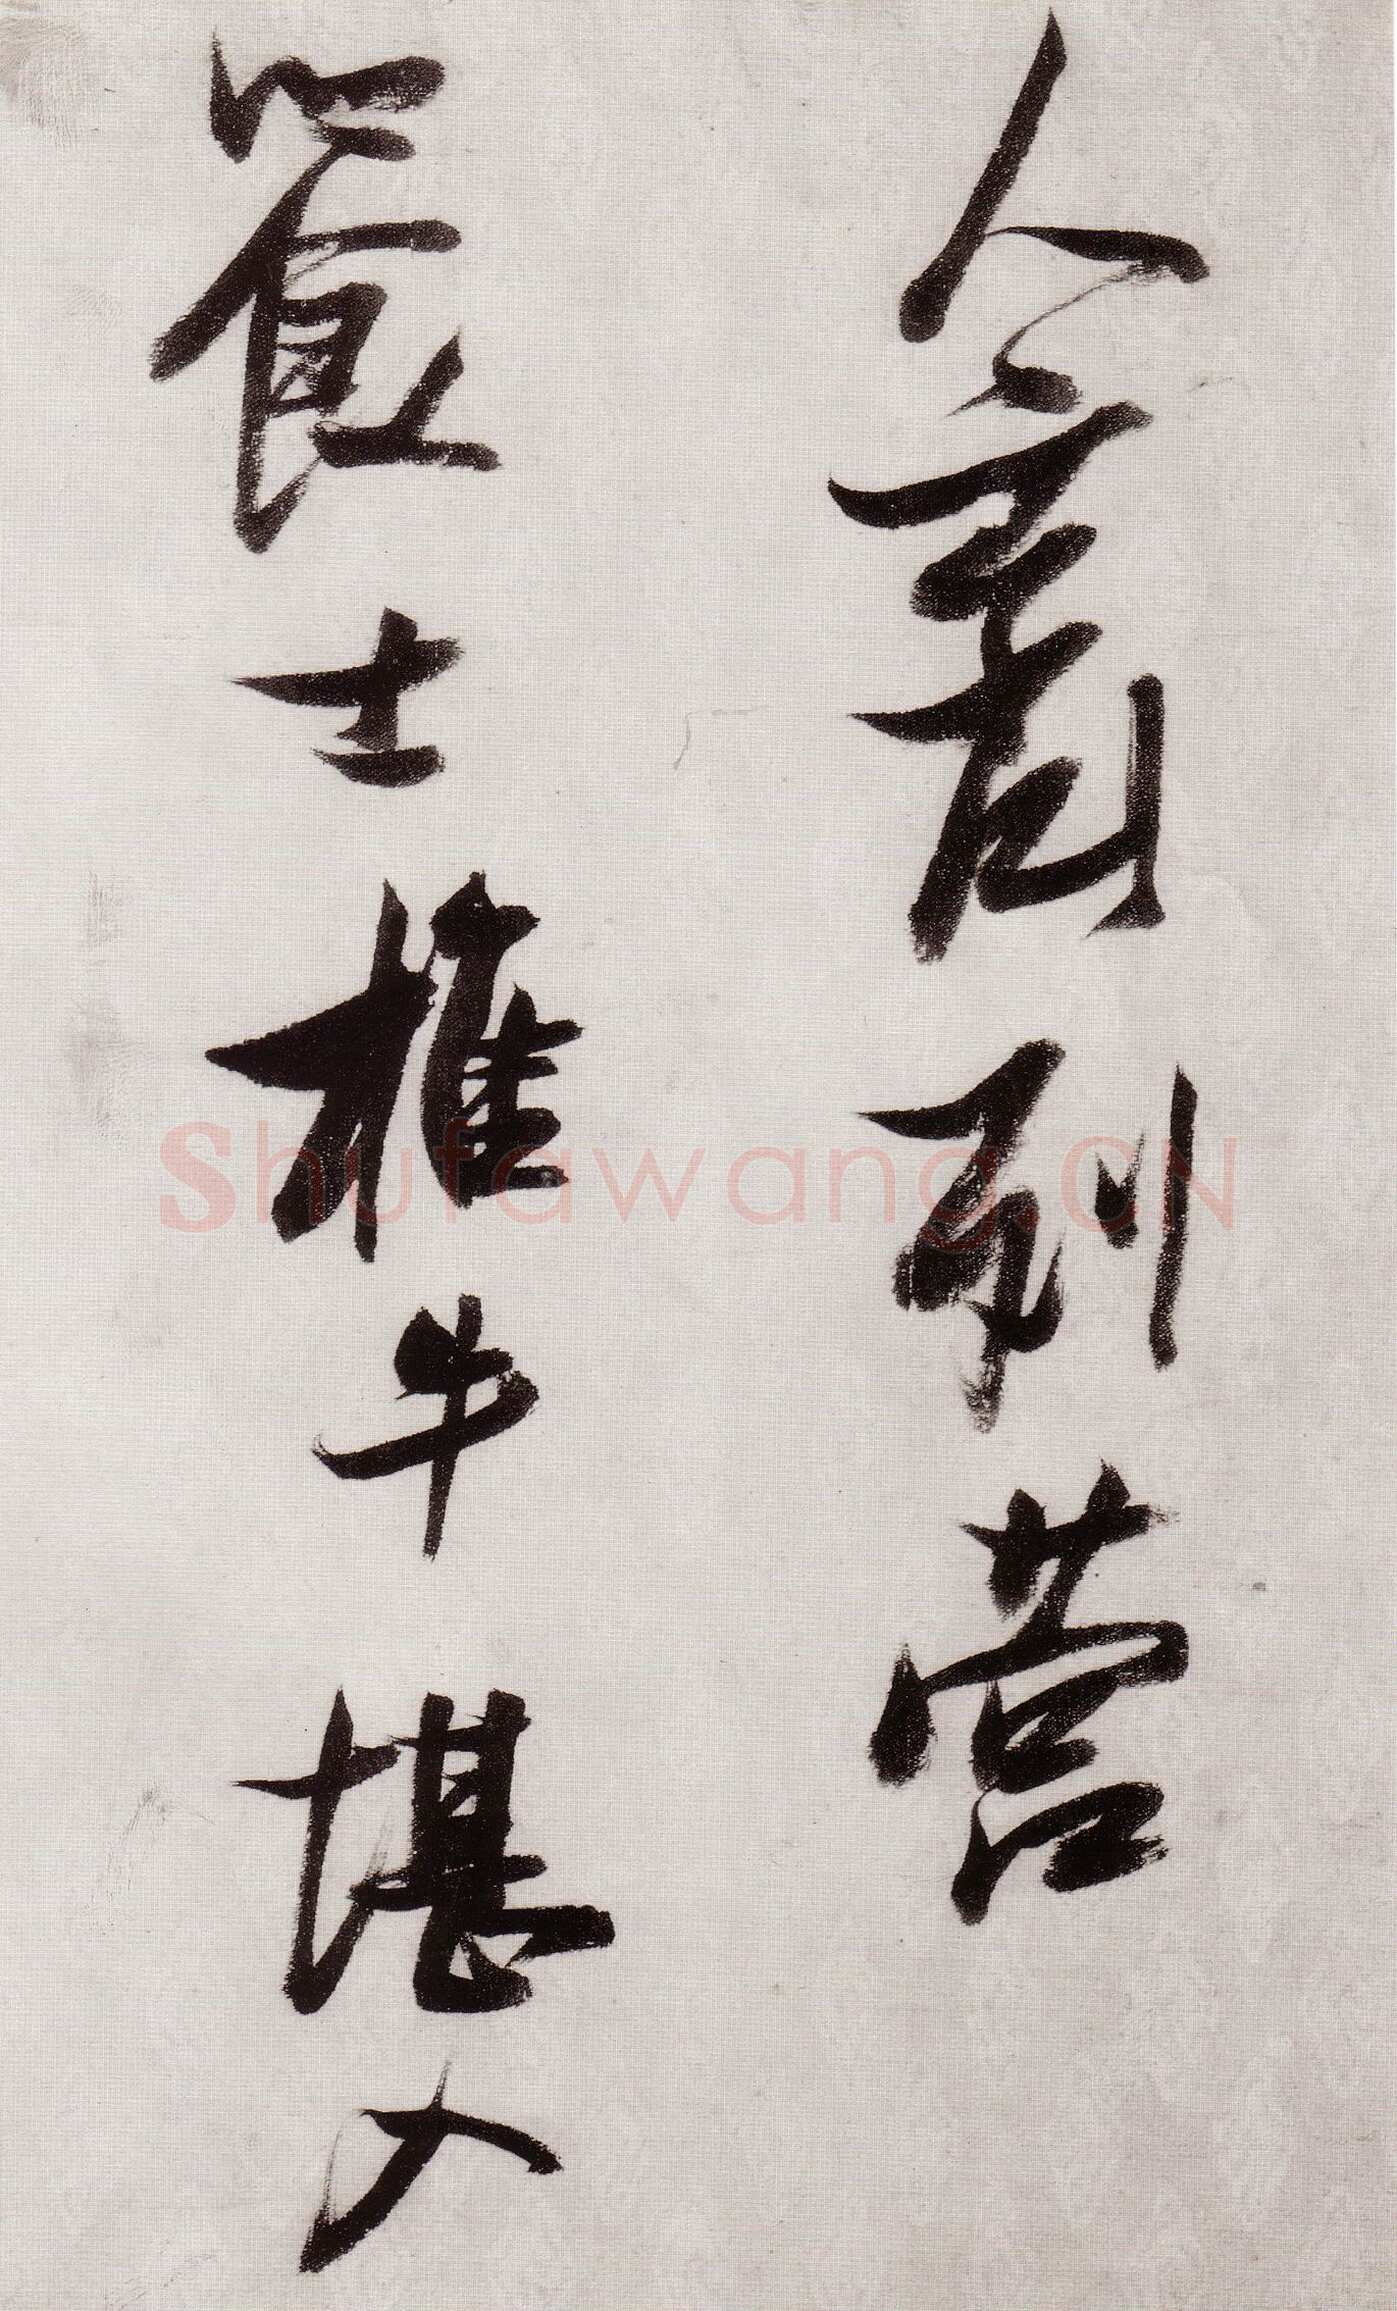 人列营
士椎牛堪入
Shufawang.CN